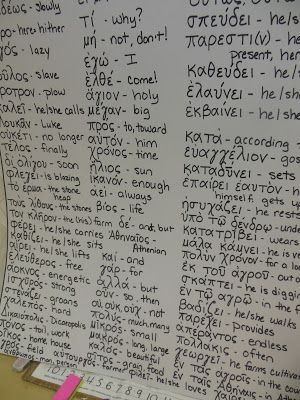 δέως - slowly
ρο - here hither
γός - lazy
οῦλος - slave
ροτρον - plow
καλεῖ - he/she calls
Λουκᾶν - Luke
οὐκέτι - no longer
τέλος - finally
δι' ὀλίγου - soon
φλέγει - is blazing
τὸ ἕρμα - the stone heap
τοὺς λίθους - the stones
τὸν κλῆρον - the (his) farm
φέρει - he/she carries
καθίζει - he/she sits
αἴρει - he/she lifts
ἐλεύθερος - free
ἄοκνος - energetic
ἰσχυρός - strong
στενάζει - groans
χαλεπός - hard
Δικαιόπολις - Dicaeopolis
πόνος - toil, work
οἶκος - home house
ἀγρός - field
ἄνθρωπος - man, person
τί - why?
μή - not, don't!
ἐγώ - I
ἐλθέ - come!
ἅγιον - holy
μέγαν - big
πρός - to, toward
αὐτόν - him
χρόνος - time
ἥλιος - sun
ἱκανόν - enough
ἀεί - always
βίος - life
δέ - and, but
Ἀθηναῖος - Athenian
καί - and
γάρ - for
ἀλλά - but
οὖν - so, then
οὐ, οὐκ, οὐχ - not
πολύς - much, many
μικρός - small
μακρός - long, large
καλός - beautiful
σῖτος - grain, food
αὐτουργός - farmer
φιλεῖ - he/she loves
σπεύδει - he/she
πάρεστι(ν) - he/she
present, here
καθεύδει - he/she
ἐλαύνει - he/she
ἐκβαίνει - he/she
κατά - according
εὐαγγέλιον - gos
καταδύνει - sets
ἐπαίρει ἑαυτόν - h
himself gets up
ἡσυχάζει - he rests
ὑπὸ τῷ δένδρῳ - under
κατατρίβει - wears
μάλα κάμνει - he is ve
πολὺν χρόνον - for a lo
ἐκ τοῦ ἀγροῦ - out
σκάπτει - he is digg
ἐν τῷ ἀγρῷ - in the f
βαδίζει - he/she walks
παρέχει - provides
ἀπέραντος - endless
πολλάκις - often
γεωργεῖ - he farms cultivat
ἐν τοῖς ἀγροῖς - in the cou
ἐν ταῖς Ἀθήναις - in Ath
4 5 6 7 8 9 10